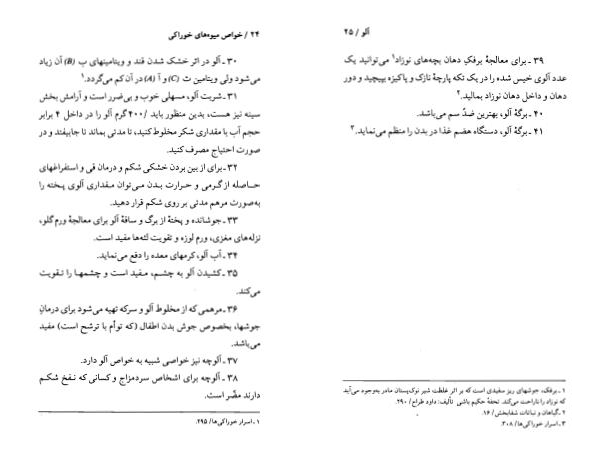 ۲۴ / خواص میوه‌های خوراکی
۳۰ ـ آلو در اثر خشک شدن قند و ویتامینهای ب (B) آن زیاد
می‌شود ولی ویتامین ث (C) و آ (A) در آن کم می‌گردد.۱
۳۱ ـ شربت آلو، مسهلی خوب و بی‌ضرر است و آرامش بخش
سینه نیز هست، بدین منظور باید ۴۰۰/ گرم آلو را در داخل ۴ برابر
حجم آب با مقداری شکر مخلوط کنید، تا مدتی بماند تا جابیفتد و در
صورت احتیاج مصرف کنید.
۳۲ ـ برای از بین بردن خشکی شکم و درمان قی و استفراغهای
حاصله از گرمی و حرارت بدن می‌توان مقداری آلوی پخته را
به‌صورت مرهم مدتی بر روی شکم قرار دهید.
۳۳ ـ جوشانده و پختهٔ از برگ و ساقهٔ آلو برای معالجهٔ ورم گلو،
نزله‌های مغزی، ورم لوزه و تقویت لثه‌ها مفید است.
۳۴ ـ آب آلو، کرمهای معده را دفع می‌نماید.
۳۵ ـ کشیدن آلو به چشم، مفید است و چشمها را تقویت
می‌کند.
۳۶ ـ مرهمی که از مخلوط آلو و سرکه تهیه می‌شود برای درمان
جوشها، بخصوص جوش بدن اطفال (که توأم با ترشح است) مفید
می‌باشد.
۳۷ ـ آلوچه نیز خواصی شبیه به خواص آلو دارد.
۳۸ ـ آلوچه برای اشخاص سردمزاج و کسانی که نفخ شکم
دارند مضّر است.
۱ ـ اسرار خوراکی‌ها/ ۲۹۵.
آلو / ۲۵
۳۹ ـ برای معالجهٔ برفکِ دهان بچه‌های نوزاد۱ می‌توانید یک
عدد آلوی خیس شده را در یک تکه پارچهٔ نازک و پاکیزه بپیچید و دور
دهان و داخل دهان نوزاد بمالید.۲
۴۰ ـ برگهٔ آلو، بهترین ضدّ سم می‌باشد.
۴۱ ـ برگهٔ آلو، دستگاه هضم غذا در بدن را منظم می‌نماید.۳
۱ ـ برفک، جوشهای ریز سفیدی است که بر اثر غلظت شیر نوک‌پستان مادر به‌وجود می‌آید
که نوزاد را ناراحت می‌کند. تحفهٔ حکیم باشی تألیف: داود طراح/ ۲۹۰.
۲ ـ گیاهان و نباتات شفابخش/ ۱۶.
۳ ـ اسرار خوراکی‌ها/ ۳۰۸.